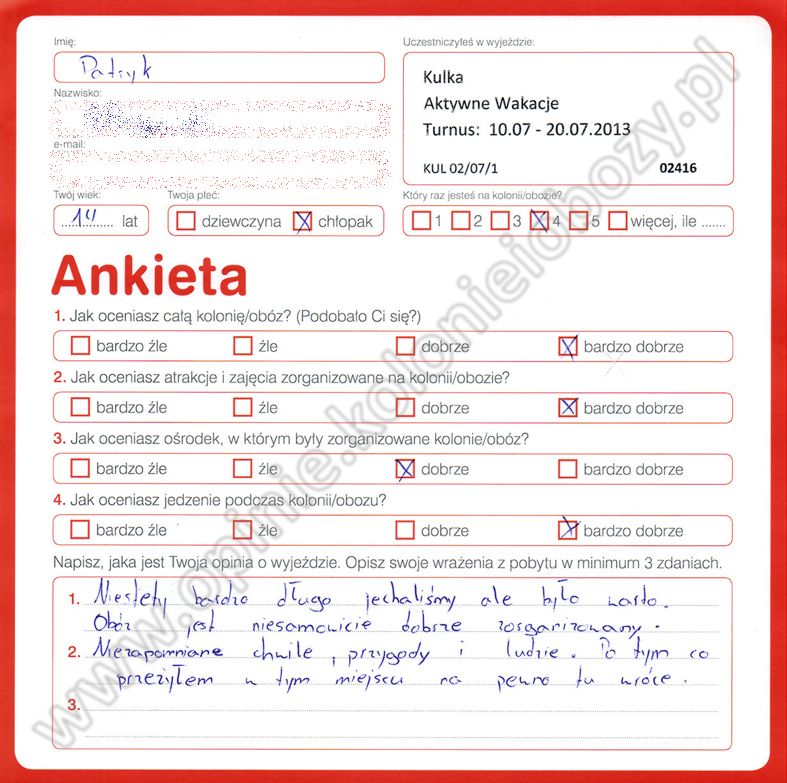 Imię:
Patryk
Uczestniczyłeś w wyjeździe:
Kulka
Aktywne Wakacje
Turnus: 10.07 - 20.07.2013
KUL 02/07/1 02416
Nazwisko:
e-mail:
Twój wiek:
14 lat
Twoja płeć:
dziewczyna X chłopak
Który raz jesteś na kolonii/obozie?
1 2 3 X 4 5 więcej, ile .......
Ankieta
1. Jak oceniasz całą kolonię/obóz? (Podobało Ci się?)
bardzo źle źle dobrze X bardzo dobrze
2. Jak oceniasz atrakcje i zajęcia zorganizowane na kolonii/obozie?
bardzo źle źle dobrze X bardzo dobrze
3. Jak oceniasz ośrodek, w którym były zorganizowane kolonie/obóz?
bardzo źle źle X dobrze bardzo dobrze
4. Jak oceniasz jedzenie podczas kolonii/obozu?
bardzo źle źle dobrze X bardzo dobrze
Napisz, jaka jest Twoja opinia o wyjeździe. Opisz swoje wrażenia z pobytu w minimum 3 zdaniach.
1. Niestety bardzo długo jechaliśmy ale było warto.
Obóz jest niesamowicie dobrze zorganizowany.
2. Niezapomniane chwile, przygody i ludzie. Po tym co
przeżyłem w tym miejscu na pewno tu wrócę.
3.
www.opinie.kolonieiobozy.pl